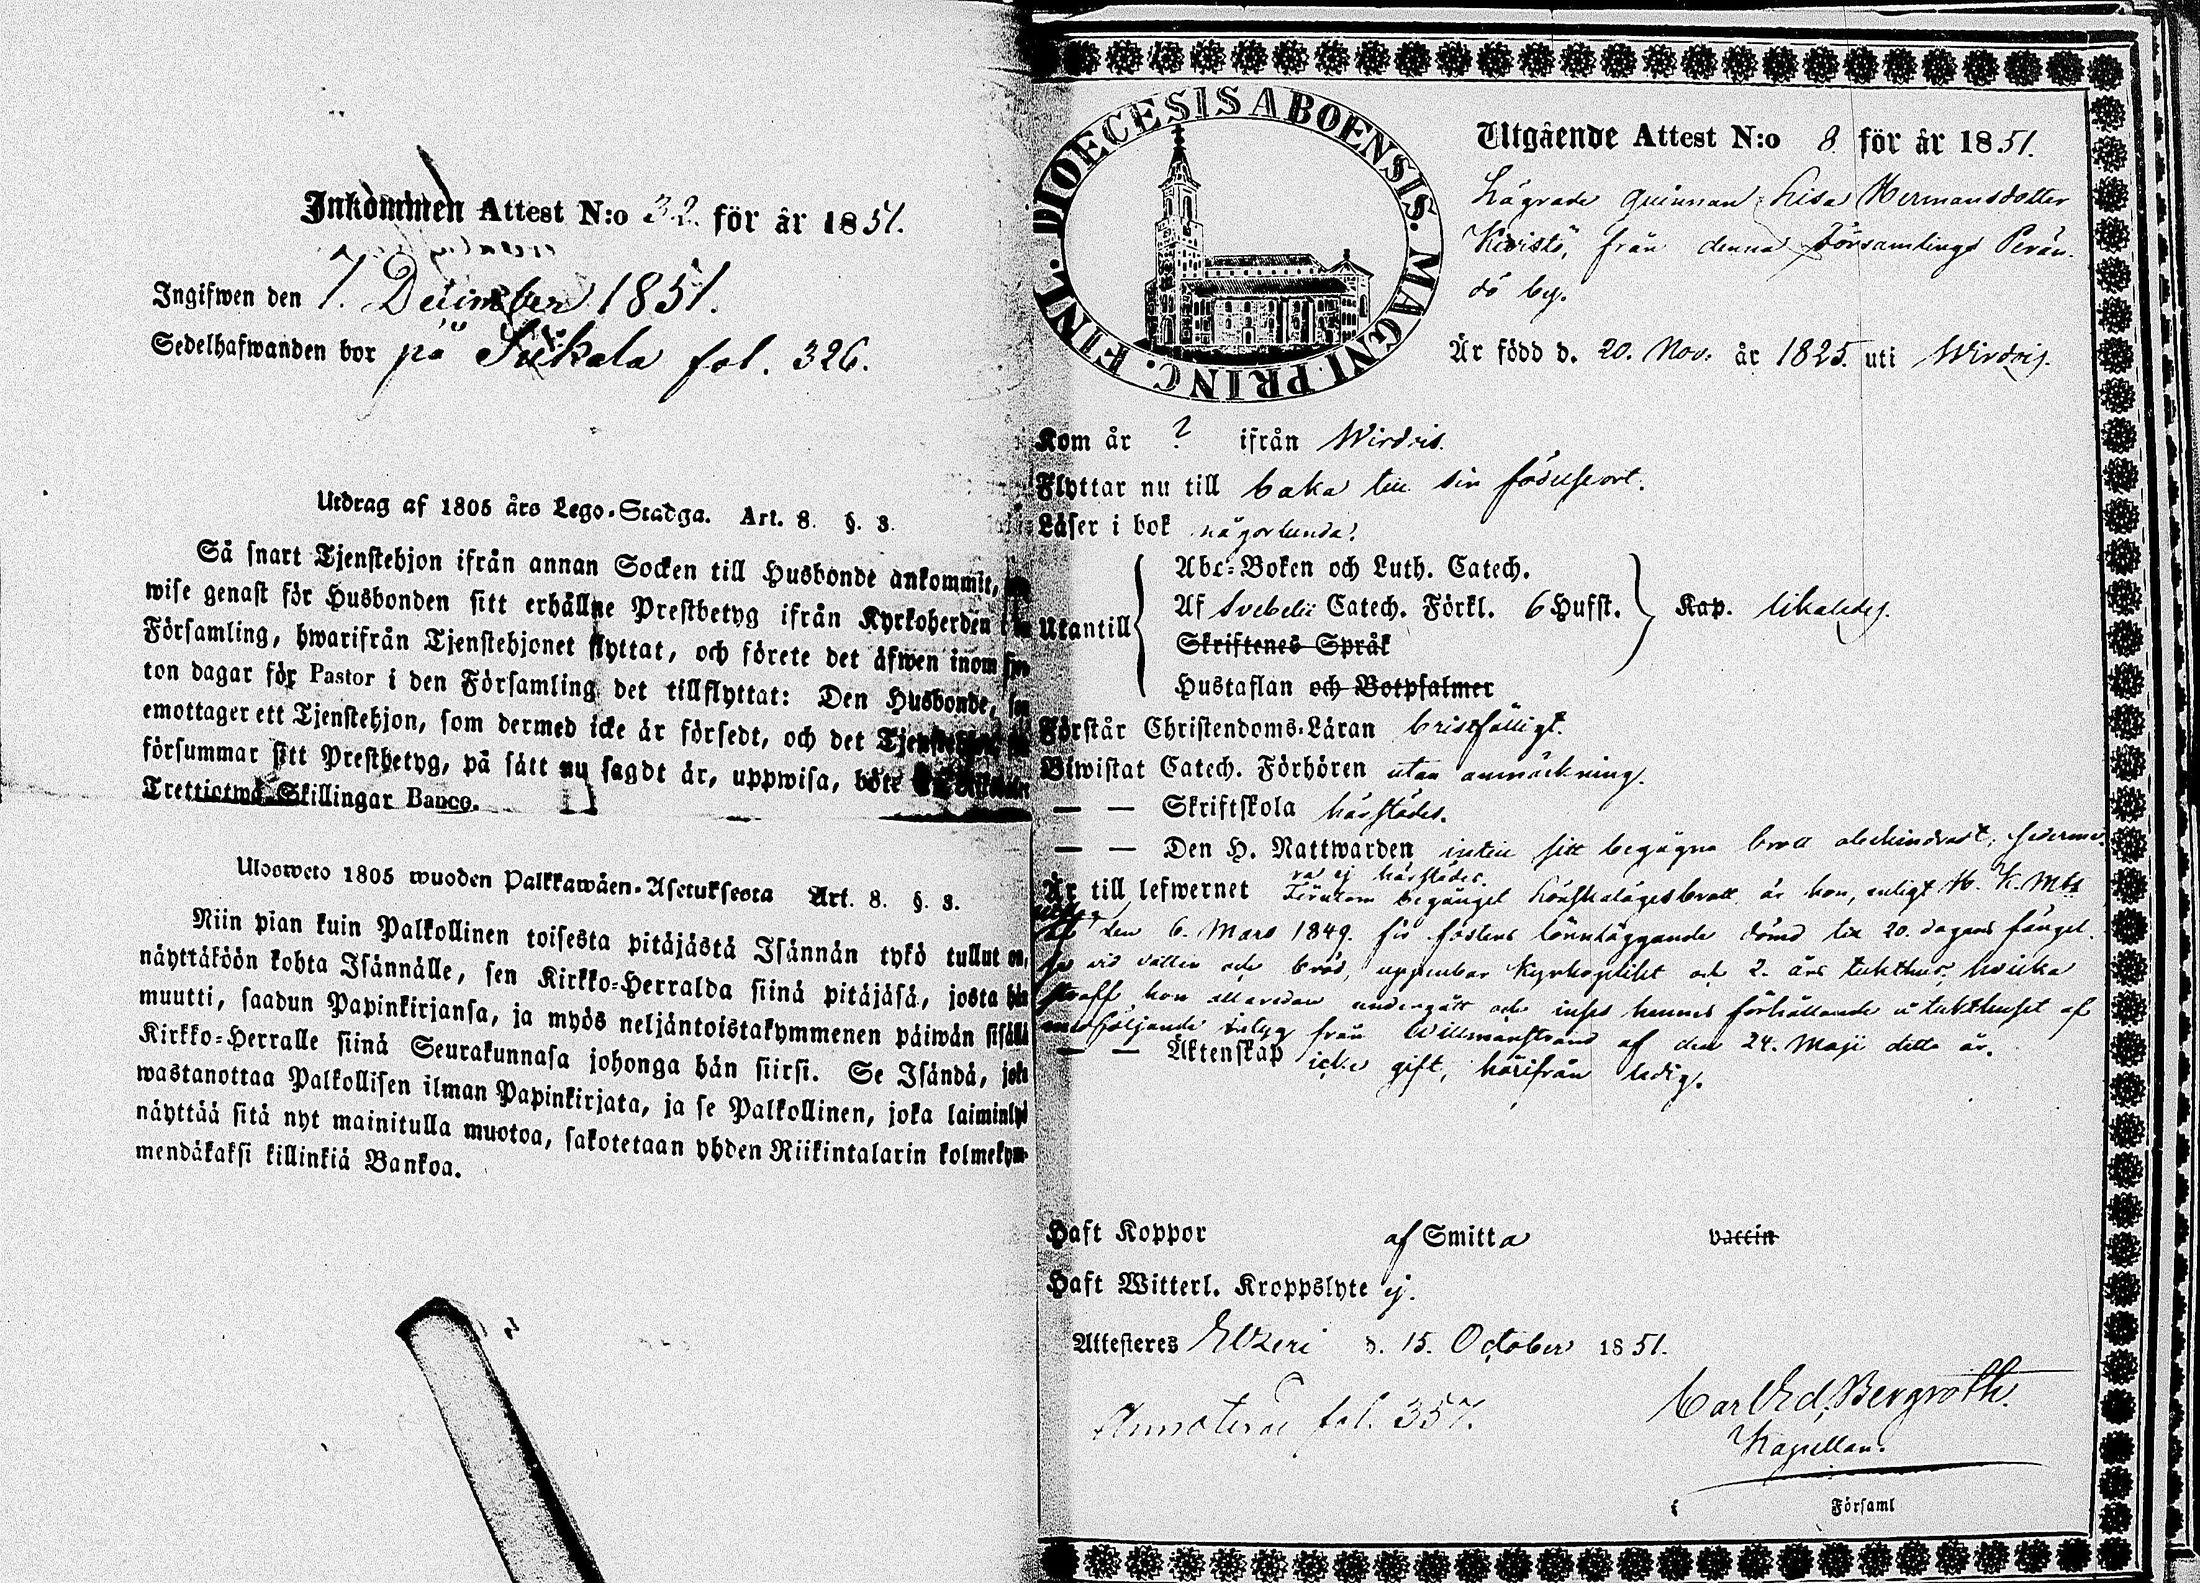 Inkommen Attest N:o 32. för år 1851.
Ingifwen den 7. December 1851.
Sedelhafwanden bor på Siikala fol. 326.
Utdrag af 1805 års Lego-Stadga. Art. 8. §. 3.
Så snart Tjenstehjon ifrån annan Socken till Husbonde ankommit,
wise genast för Husbonden sitt erhållne Prestbetyg ifrån Kyrkoherden i
Församling, hwarifrån Tjenstehjonet flyttat, och förete det äfwen inom
ton dagar för Pastor i den Församling det tillflyttat: Den Husbonde,
emottager ett Tjenstehjon, som dermed icke är försedt, och det
försummar sitt Prestbetyg, på sätt nu sagdt är, uppwisa, böte
Trettiotwå Skillingar Banco.
Ulosweto 1805 wuoden Palkkawäen-Asetuksesta Art. 8. §. 3.
Niin pian kuin Palkollinen toisesta pitäjästä Isännän tykö tullut on,
näyttäköön kohta Isännälle, sen Kirkko-Herralda siinä pitäjäsä, josta hän
muutti, saadun Papinkirjansa, ja myös neljäntoistakymmenen päiwän sisällä
Kirkko-Herralle siinä Seurakunnasa johonga hän siirsi. Se Isändä, joka
wastanottaa Palkollisen ilman Papinkirjata, ja se Palkollinen, joka laiminlyö
näyttää sitä nyt mainitulla muotoa, sakotetaan yhden Riikintalarin kolmekym-
mendäkaksi killinkiä Bankoa.
FINL. DIOECESIS ABOENSIS. MAGNI PRINC.
Utgående Attest N:o 8 för år 1851.
Lägrade qvinnan Lisa Hermansdotter
Kivistö, från denna Församlings Perän-
dö by.
Är född d. 20. Nov. år 1825. uti Wirdois.
Kom år ? ifrån Wirdois.
Flyttar nu till baka till sin födelseort.
Läser i bok någorlunda.
Utantill
Abc-Boken och Luth. Catech.
Af Svebelii Catech. Förkl. 6 Hufst.
Skriftenes Språk
Hustaflan och Botpsalmer
Kap. likaledes.
Förstår Christendoms-Läran bristfälligt.
Biwistat Catech. Förhören utan anmärkning.
— — Skriftskola härstädes.
— — Den H. Nattwarden intill sitt begågna brott obehindradt, sederme-
ra ej härstädes.
Är till lefwernet Förutom begånget lönskalägesbrott är hon, enligt H. K. Mts
den 6. Mars 1849. för fosters lönnläggande dömd till 20. dagars fängel-
se vid vatten och bröd, uppenbar Kyrkoplikt och 2. års tukthus, hvilka
straff hon allaredan undergått och inses hennes förhållande i tukthuset af
medföljande intyg från Willmanstrand af den 24. Maji detta år.
— — Äktenskap icke gift, härifrån ledig.
Haft Koppor af Smitta vaccin
Haft Witterl. Kroppslyte ej.
Attesteres Etzeri d. 15. October 1851.
Annoterad fol. 357.
Carl Ed. Bergroth.
Kapellan.
i Församl